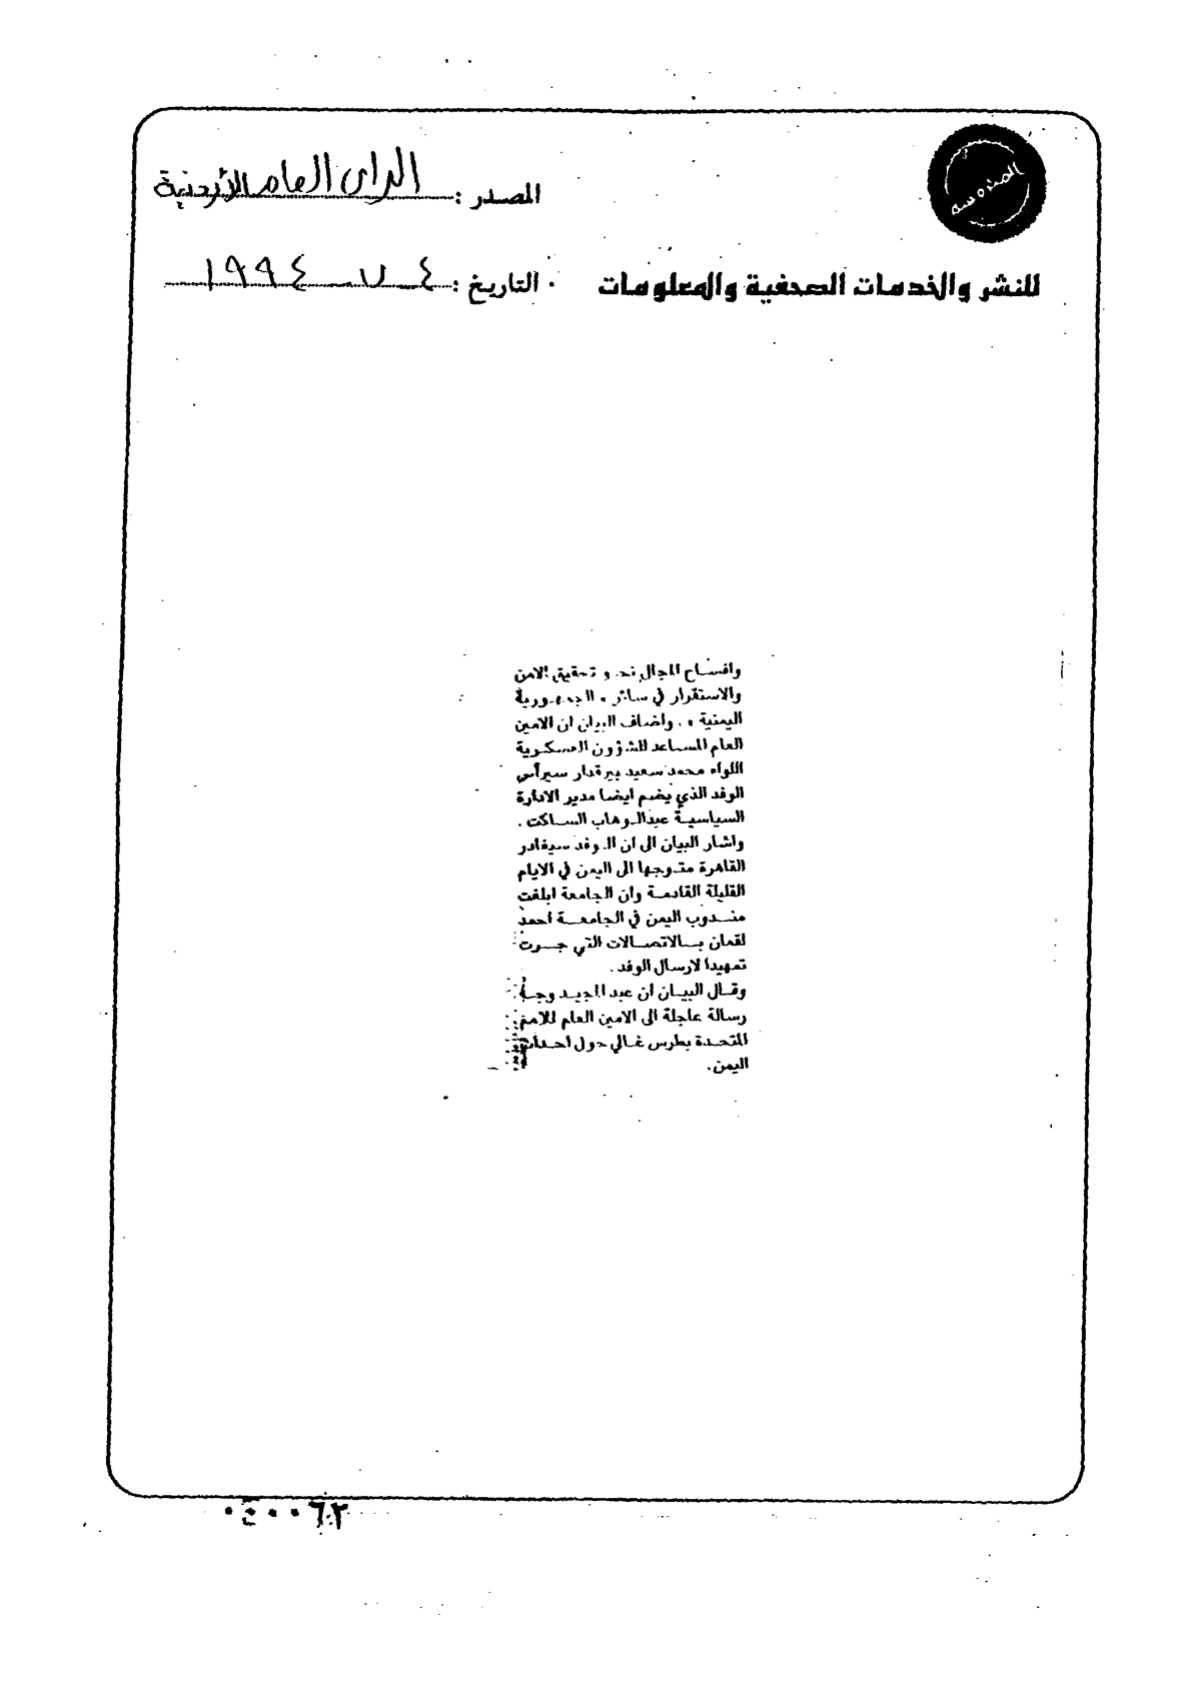 المصدر : الرأى العام الأردنية
للنشر والخدمات الصحفية والمعلومات
التاريخ : ٤ ٧ ١٩٩٤
وافساح المجال نحو تحقيق الامن
والاستقرار في سائر الجمهورية
اليمنية » . واضاف البيان ان الامين
العام المساعد للشؤون العسكرية
اللواء محمد سعيد بيرقدار سيرأس
الوفد الذي يضم ايضا مدير الادارة
السياسية عبدالوهاب الساكت .
واشار البيان الى ان الوفد سيغادر
القاهرة متوجها الى اليمن في الايام
القليلة القادمة وان الجامعة ابلغت
مندوب اليمن في الجامعة احمد
لقمان بالاتصالات التي جرت
تمهيدا لارسال الوفد .
وقال البيان ان عبد المجيد وجه
رسالة عاجلة الى الامين العام للامم
المتحدة بطرس غالي حول احداث
اليمن .